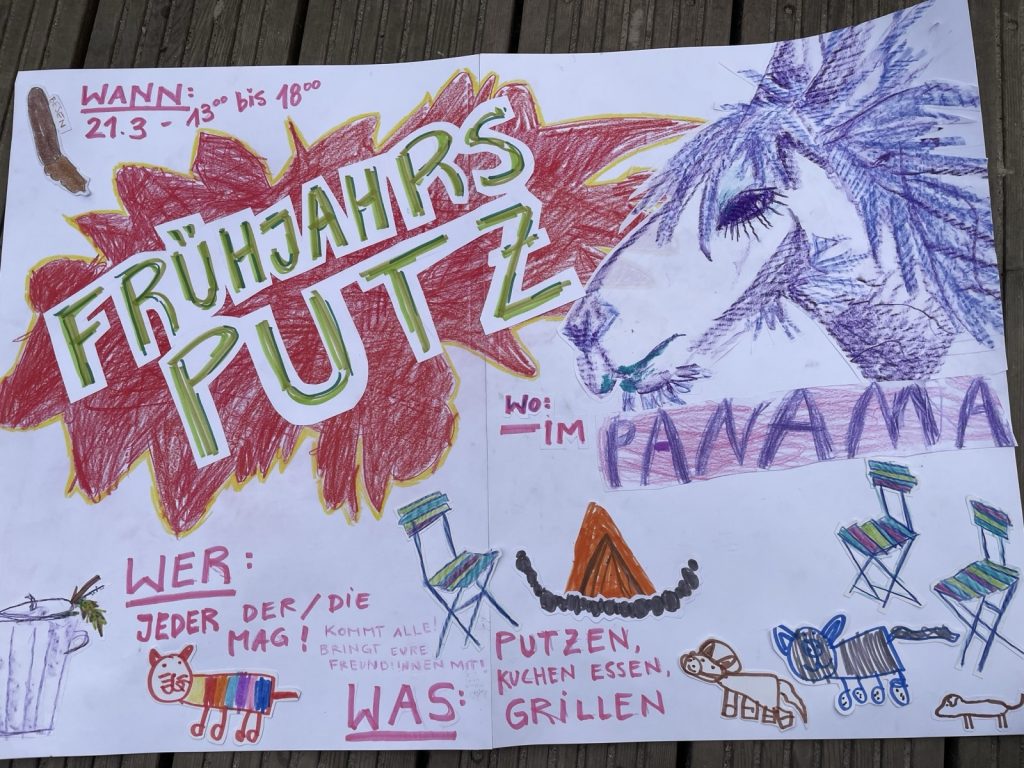 WANN:
21.3 - 13⁰⁰ bis 18⁰⁰
FRÜHJAHRS
PUTZ
WO:
IM
PANAMA
WER:
JEDER DER/DIE
MAG!
KOMMT ALLE!
BRINGT EURE
FREUND!INNEN MIT!
WAS:
PUTZEN,
KUCHEN ESSEN,
GRILLEN